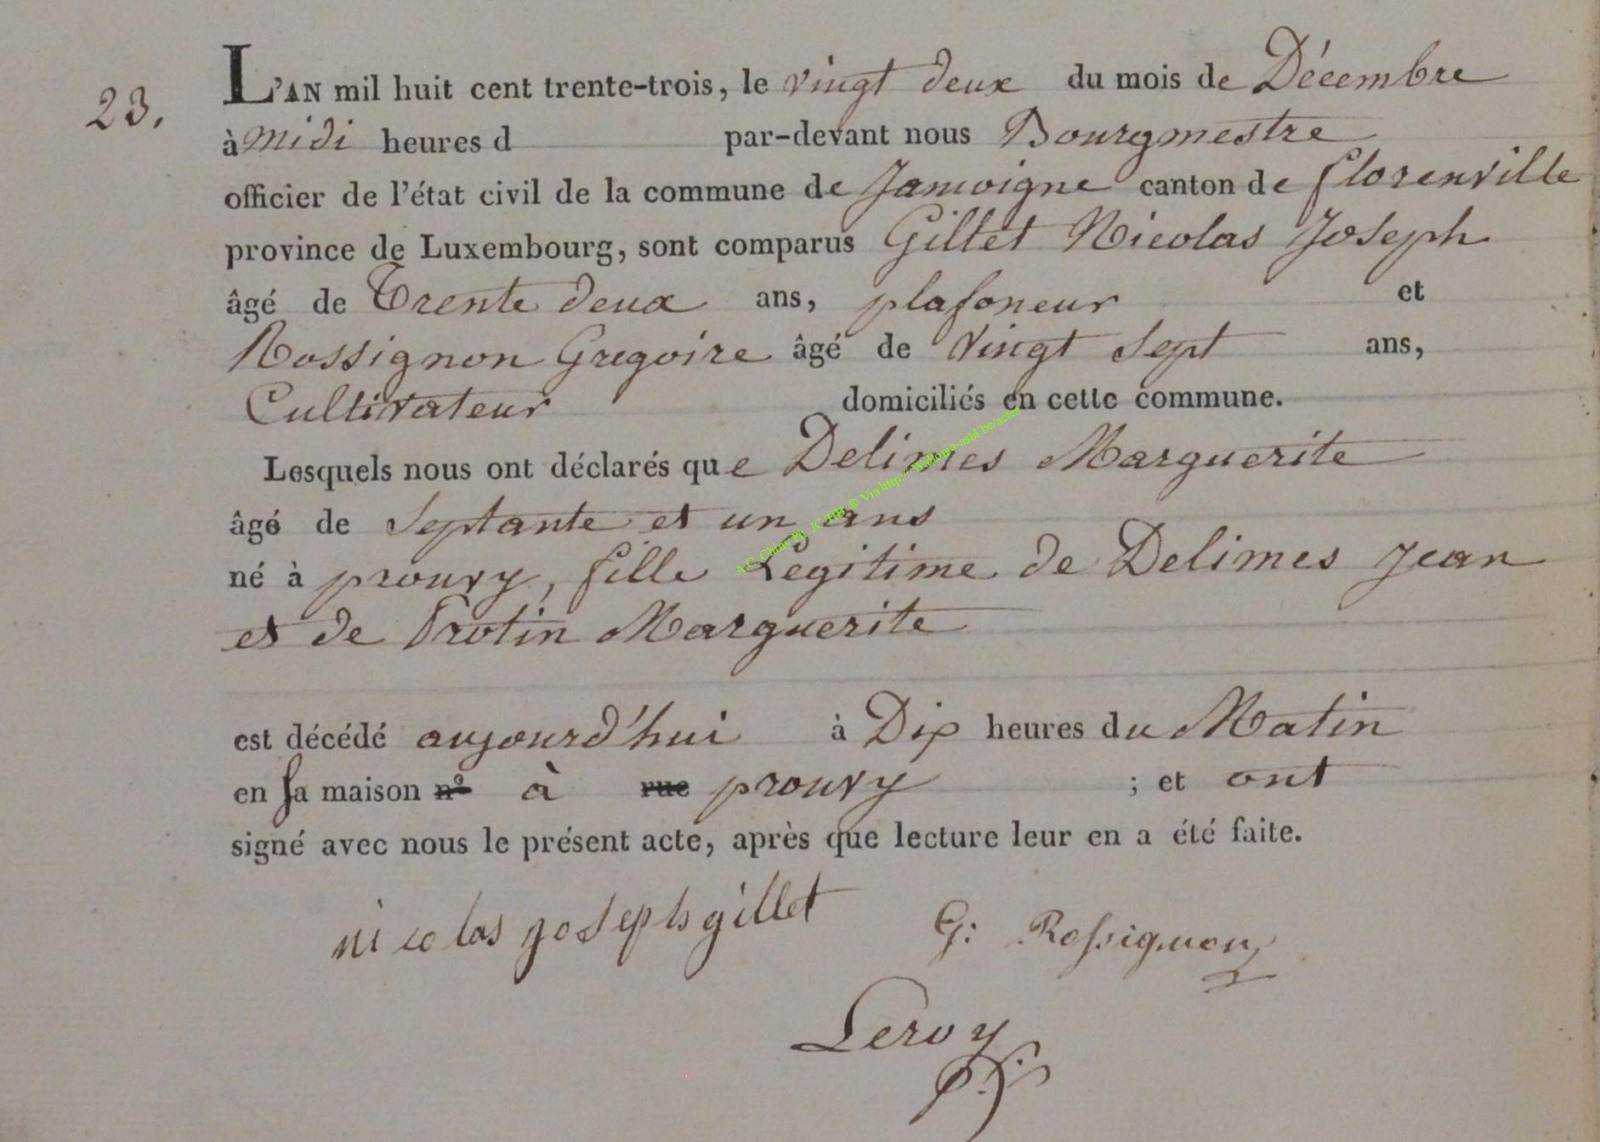 23.
L'AN mil huit cent trente-trois, le vingt deux du mois de Décembre
à midi heures d par-devant nous Bourgmestre
officier de l'état civil de la commune de Jamoigne canton de florenville
province de Luxembourg, sont comparus Gillet Nicolas Joseph
âgé de Trente deux ans, plafoneur et
Rossignon Gregoire âgé de vingt sept ans,
Cultivateur domiciliés en cette commune.
Lesquels nous ont déclarés que Delimes Marguerite
âgé de Septante et un ans
né à prouvy, fille Légitime de Delimes Jean
et de Protin Marguerite
est décédé aujourd'hui à Dix heures du Matin
en sa maison n° à rue prouvy ; et ont
signé avec nous le présent acte, après que lecture leur en a été faite.
nicolas joseph gillet G: Rossignon
Leroy